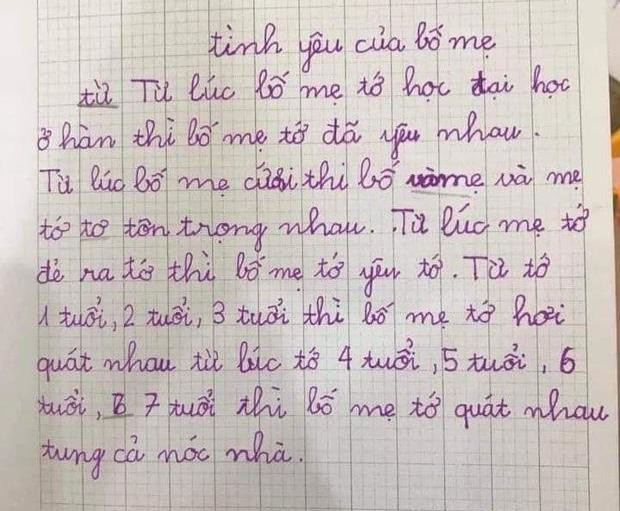 tình yêu của bố mẹ
từ Từ lúc bố mẹ tớ học đại học
ở hàn thì bố mẹ tớ đã yêu nhau.
Từ lúc bố mẹ cưới thì bố và mẹ và mẹ
tớ tơ tôn trọng nhau. Từ lúc mẹ tớ
đẻ ra tớ thì bố mẹ tớ yêu tớ. Từ tớ
1 tuổi, 2 tuổi, 3 tuổi thì bố mẹ tớ hơi
quát nhau từ lúc tớ 4 tuổi, 5 tuổi, 6
tuổi, 7 tuổi thì bố mẹ tớ quát nhau
tung cả nóc nhà.